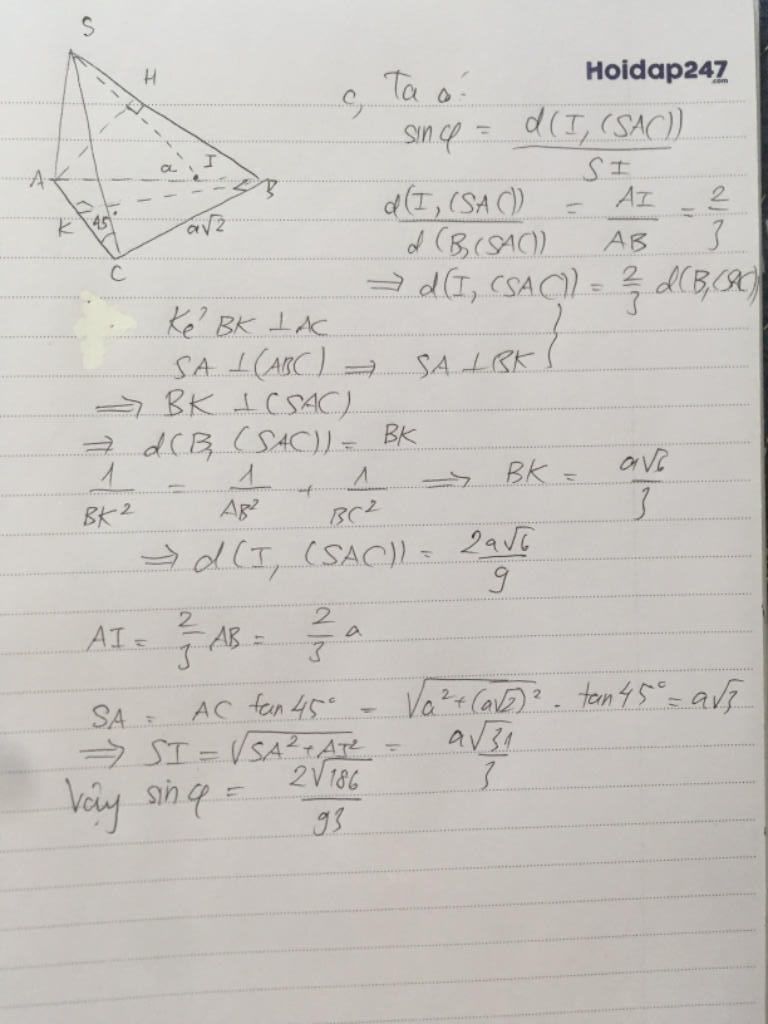 S
H
Hoidap247
.com
c, Ta có:
sin φ = d(I, (SAC)) / SI
A
a
I
B
K
45°
a√2
C
d(I, (SAC)) / d(B, (SAC)) = AI / AB = 2/3
⇒ d(I, (SAC)) = 2/3 d(B, (SAC))
Kẻ BK ⊥ AC
SA ⊥ (ABC) ⇒ SA ⊥ BK }
⇒ BK ⊥ (SAC)
⇒ d(B, (SAC)) = BK
1/BK² = 1/AB² + 1/BC² ⇒ BK = a√6/3
⇒ d(I, (SAC)) = 2a√6/9
AI = 2/3 AB = 2/3 a
SA = AC tan 45° = √(a² + (a√2)²) . tan 45° = a√3
⇒ SI = √(SA² + AI²) = a√31/3
Vậy sin φ = 2√186/93